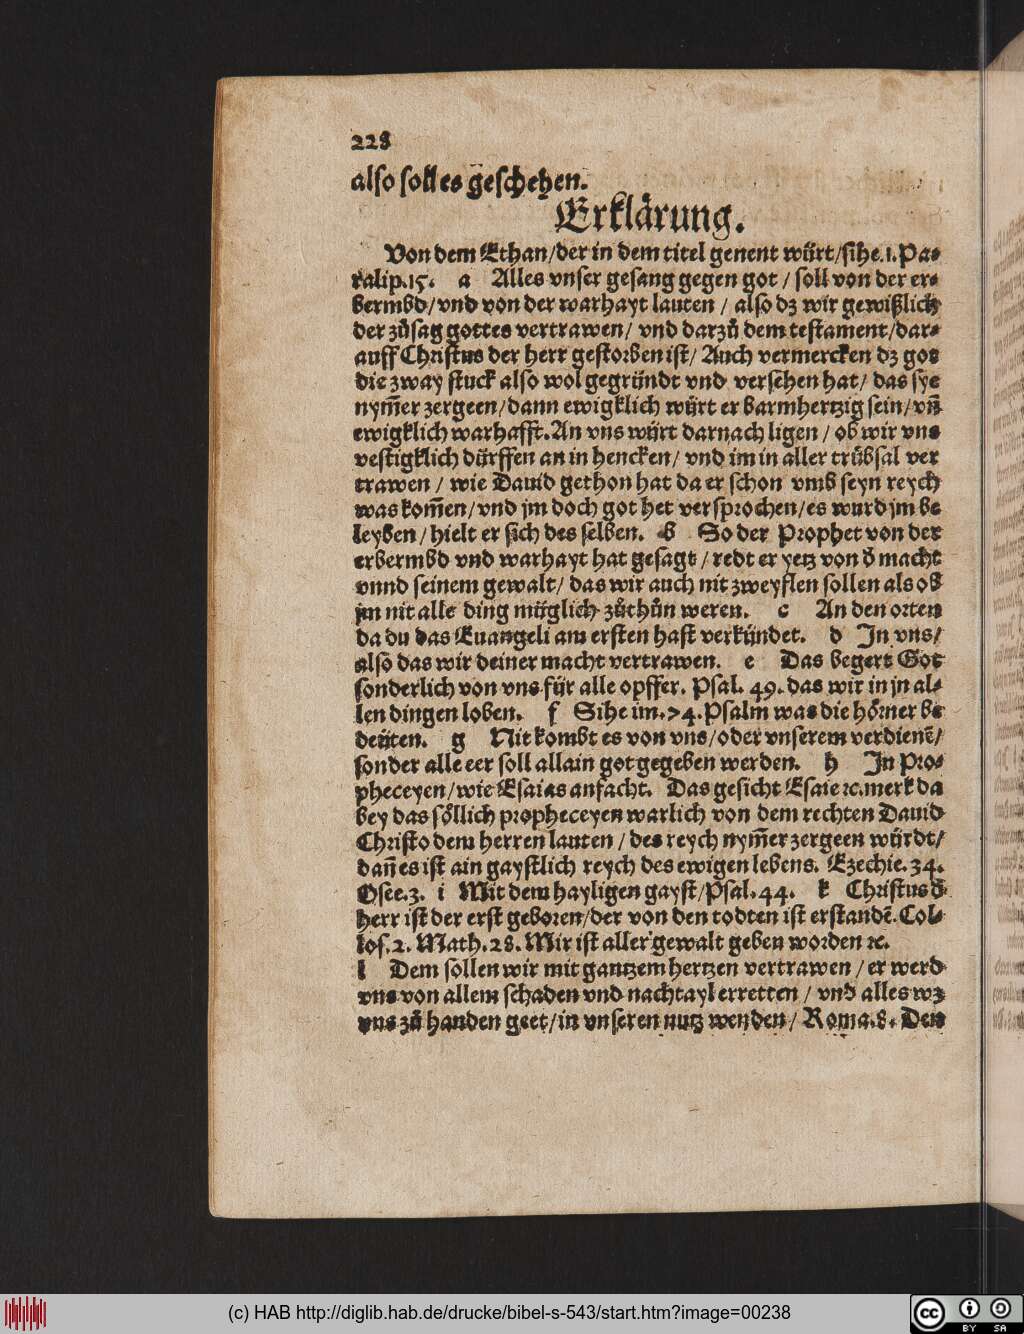 228
also soll es geschehen.
Erklärung.
Von dem Ethan/der in dem titel genent würt/sihe.1.Pa⸗
ralip.15. a Alles vnser gesang gegen got / soll von der er⸗
bermbd/vnd von der warhayt lauten / also dz wir gewißlich
der zůsag gottes vertrawen/ vnd darzů dem testament/dar⸗
auff Christus der herr gestorben ist/ Auch vermercken dz got
die zway stuck also wol gegründt vnd versehen hat/ das sye
nym̃er zergeen/dann ewigklich würt er barmhertzig sein/vñ
ewigklich warhafft. An vns würt darnach ligen / ob wir vns
vestigklich dürffen an in hencken/ vnd im in aller trůbsal ver
trawen / wie Dauid gethon hat da er schon vmb seyn reych
was kom̃en/vnd jm doch got het versprochen/es wurd jm be
leyben / hielt er sich des selben. b So der Prophet von der
erbermbd vnd warhayt hat gesagt / redt er yetz von d̕ macht
vnnd seinem gewalt/ das wir auch nit zweyflen sollen als ob
jm nit alle ding müglich zůthůn weren. c An den orten
da du das Euangeli am ersten hast verkündet. d In vns/
also das wir deiner macht vertrawen. e Das begert Got
sonderlich von vns für alle opffer. Psal. 49. das wir in jn al⸗
len dingen loben. f Sihe im.74.Psalm was die hörner be
deüten. g Nit kombt es von vns/oder vnserem verdienẽ/
sonder alle eer soll allain got gegeben werden. h In Pro⸗
pheceyen/wie Esaias anfacht. Das gesicht Esaie ꝛc.merk da
bey das söllich propheceyen warlich von dem rechten Dauid
Christo dem herren lauten / des reych nym̃er zergeen würdt/
dañ es ist ain gaystlich reych des ewigen lebens. Ezechie.34.
Osee.3. i Mit dem hayligen gayst/Psal.44. k Christus d̕
herr ist der erst geboren/der von den todten ist erstandẽ. Col⸗
los.2. Math.28. Mir ist aller gewalt geben worden ꝛc.
l Dem sollen wir mit gantzem hertzen vertrawen / er werd
vns von allem schaden vnd nachtayl erretten / vnd alles wz
vns zů handen geet/in vnseren nutz wenden/ Roma.8. Den
(c) HAB http://diglib.hab.de/drucke/bibel-s-543/start.htm?image=00238
cc BY SA